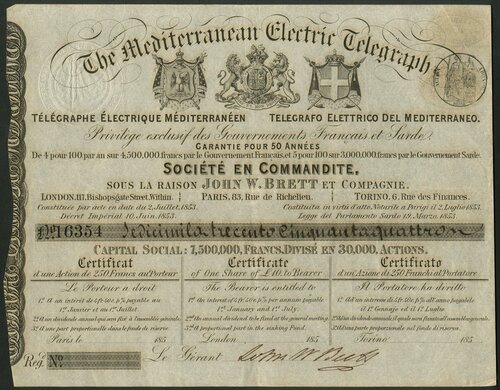 The Mediterranean Electric Telegraph
TÉLÉGRAPHE ÉLECTRIQUE MÉDITERRANÉEN TELEGRAFO ELETTRICO DEL MEDITERRANEO.
Privilège exclusif des Gouvernements Français et Sarde.
GARANTIE POUR 50 ANNÉES
De 4 pour 100 par an sur 4,500,000 francs par le Gouvernement Français, et 5 pour 100 sur 3,000,000 francs par le Gouvernement Sarde.
SOCIÉTÉ EN COMMANDITE,
SOUS LA RAISON JOHN W. BRETT ET COMPAGNIE;
LONDON, 117, Bishopsgate Street, Within. PARIS, 83, Rue de Richelieu. TORINO, 6, Rue des Finances.
Constituée par acte en date du 2. Juillet, 1853. Costituita in virtù d'atto, Notarile a Parigi il 2. Luglio, 1853.
Décret Impérial 10. Juin, 1853. Legge del Parlamento Sardo 19. Marzo, 1853.
No. 16354 Sedicimila trecento cinquantaquattro
CAPITAL SOCIAL: 7,500,000, FRANCS, DIVISÉ EN 30,000, ACTIONS.
Certificat Certificate Certificato
d'une Action de 250 Francs au Porteur of One Share of £10 to Bearer d'un Azione di 250 Franchi al Portatore
Le Porteur a droit The Bearer is entitled to Il Portatore ha diritto
1.º A un intérêt de 4 fr. 50c. p% payable au 1.º An interest of 4 fr. 50c. p% per annum payable 1.º A un interesse di 4 fr. 50c. p% all' anno pagabile
1.er Janvier et au 1.er Juillet. 1.st January and 1.st July. il 1.º Gennajo ed il 1.º Luglio
2.º Au dividende annuel qui sera fixé à l'assemblée générale. 2.º The annual dividend to be fixed at the general meeting
3.º A une part proportionnelle dans le fonds de réserve. 3.º A proportional part in the sinking Fund.
Paris le 185 London 185 Torino 185
Reg.d No. Le Gérant John W Brett